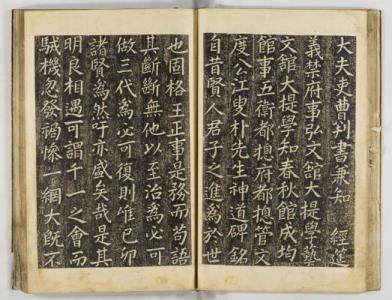 大夫吏曹判書兼知 經筵
義禁府事弘文館大提學藝
文館大提學知春秋館成均
館事五衛都摠府都摠管文
度公江叟朴先生神道碑銘
自昔賢人君子之進為於世
也固格王正事是務而苟語
其斷斷無他以至治為必可
做三代為必可復則唯己卯
諸賢為然吁亦盛矣哉是其
明良相遇可謂千一之會而
駴機忽發禍慘一網大旣不